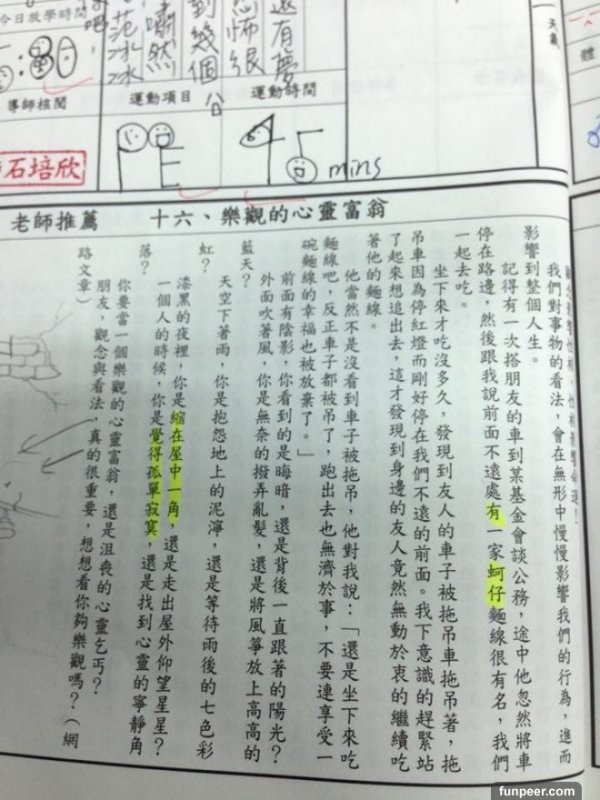 今日放學時間
導師核閱
石培欣
還有夢
恐怖很
到幾個台
嘯然
范冰冰
運動項目
運動時間
PE
45 mins
天氣
體
老師推薦
十六、樂觀的心靈富翁
我們對事物的看法，會在無形中慢慢影響我們的行為，進而
影響到整個人生。
記得有一次搭朋友的車到某基金會談公務，途中他忽然將車
停在路邊，然後跟我說前面不遠處有一家蚵仔麵線很有名，我們
一起去吃。
坐下來才吃沒多久，發現到友人的車子被拖吊車拖吊著，拖
吊車因為停紅燈而剛好停在我們不遠的前面。我下意識的趕緊站
了起來想追出去，這才發現到身邊的友人竟然無動於衷的繼續吃
著他的麵線。
他當然不是沒看到車子被拖吊，他對我說：「還是坐下來吃
麵線吧，反正車子都被吊了，跑出去也無濟於事，不要連享受一
碗麵線的幸福也被放棄了。」
前面有陰影，你看到的是晦暗，還是背後一直跟著的陽光？
外面吹著風，你是無奈的撥弄亂髮，還是將風箏放上高高的
藍天？
天空下著雨，你是抱怨地上的泥濘，還是等待雨後的七色彩
虹？
漆黑的夜裡，你是縮在屋中一角，還是走出屋外仰望星星？
一個人的時候，你是覺得孤單寂寞，還是找到心靈的寧靜角
落？
你要當一個樂觀的心靈富翁，還是沮喪的心靈乞丐？
朋友，觀念與看法，真的很重要，想想看你夠樂觀嗎？（網
路文章）
funpeer.com